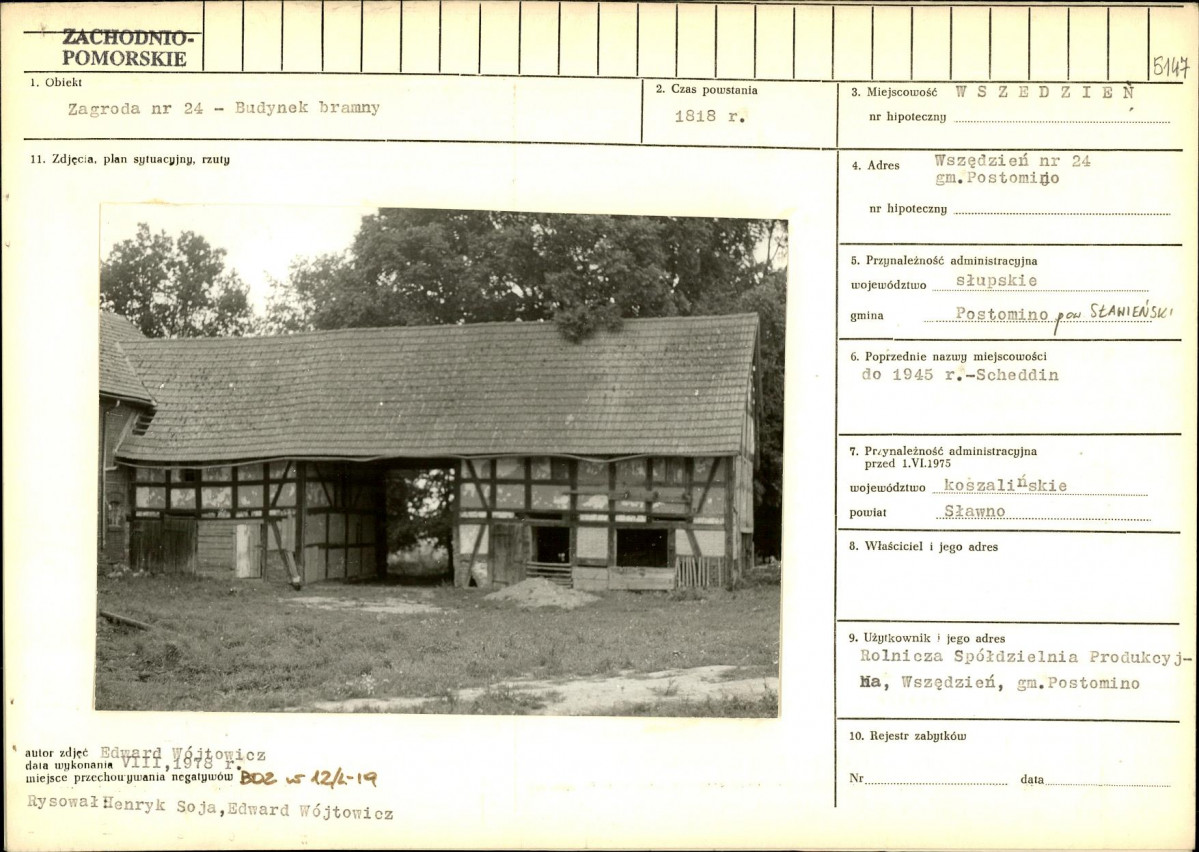 ZACHODNIO-
POMORSKIE
5147
1. Obiekt
Zagroda nr 24 - Budynek bramny
2. Czas powstania
1818 r.
3. Miejscowość WSZEDZIEŃ
nr hipoteczny
11. Zdjęcia, plan sytuacyjny, rzuty
4. Adres Wszędzień nr 24
gm.Postomino
nr hipoteczny
5. Przynależność administracyjna
województwo słupskie
gmina Postomino pow SŁAWIEŃSKI
6. Poprzednie nazwy miejscowości
do 1945 r.-Scheddin
7. Przynależność administracyjna
przed 1.VI.1975
województwo koszalińskie
powiat Sławno
8. Właściciel i jego adres
9. Użytkownik i jego adres
Rolnicza Spółdzielnia Produkcyj-
na, Wszędzień, gm.Postomino
10. Rejestr zabytków
Nr data
autor zdjęć Edward Wójtowicz
data wykonania VIII,1978 r.
miejsce przechowywania negatywów BDZ w 12/L-19
Rysował Henryk Soja,Edward Wójtowicz